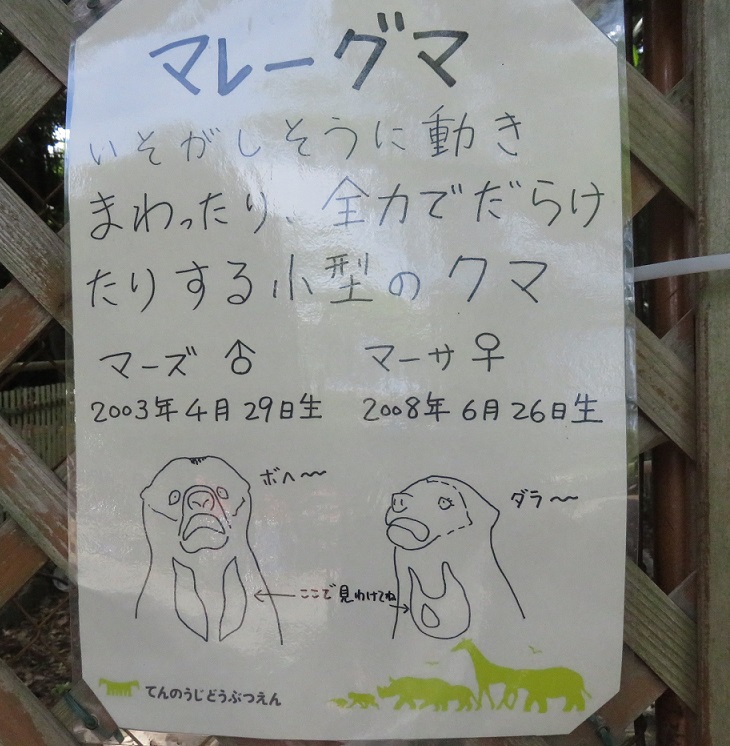 マレーグマ
いそがしそうに動き
まわったり、全力でだらけ
たりする小型のクマ
マーズ ♂ マーサ ♀
2003年4月29日生 2008年6月26日生
ボヘ〜
ダラ〜
ここで見わけてね
てんのうじどうぶつえん